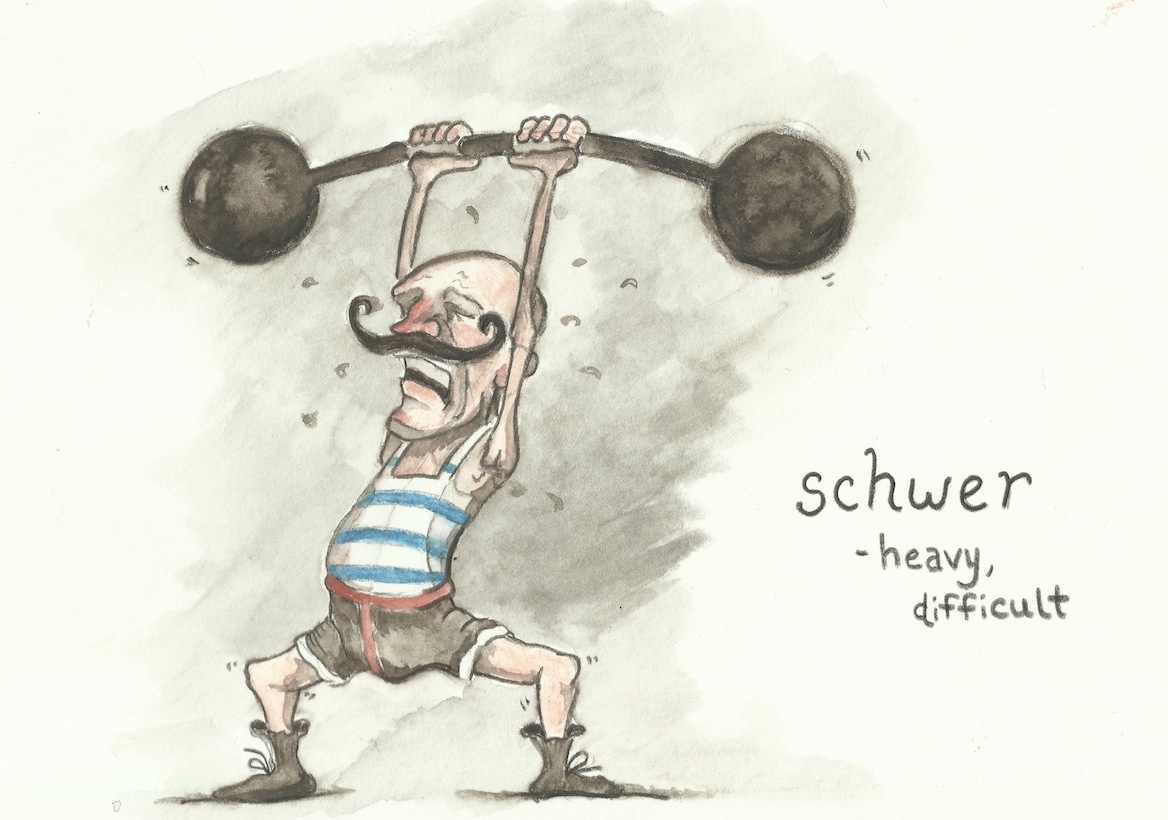 schwer
-heavy,
difficult